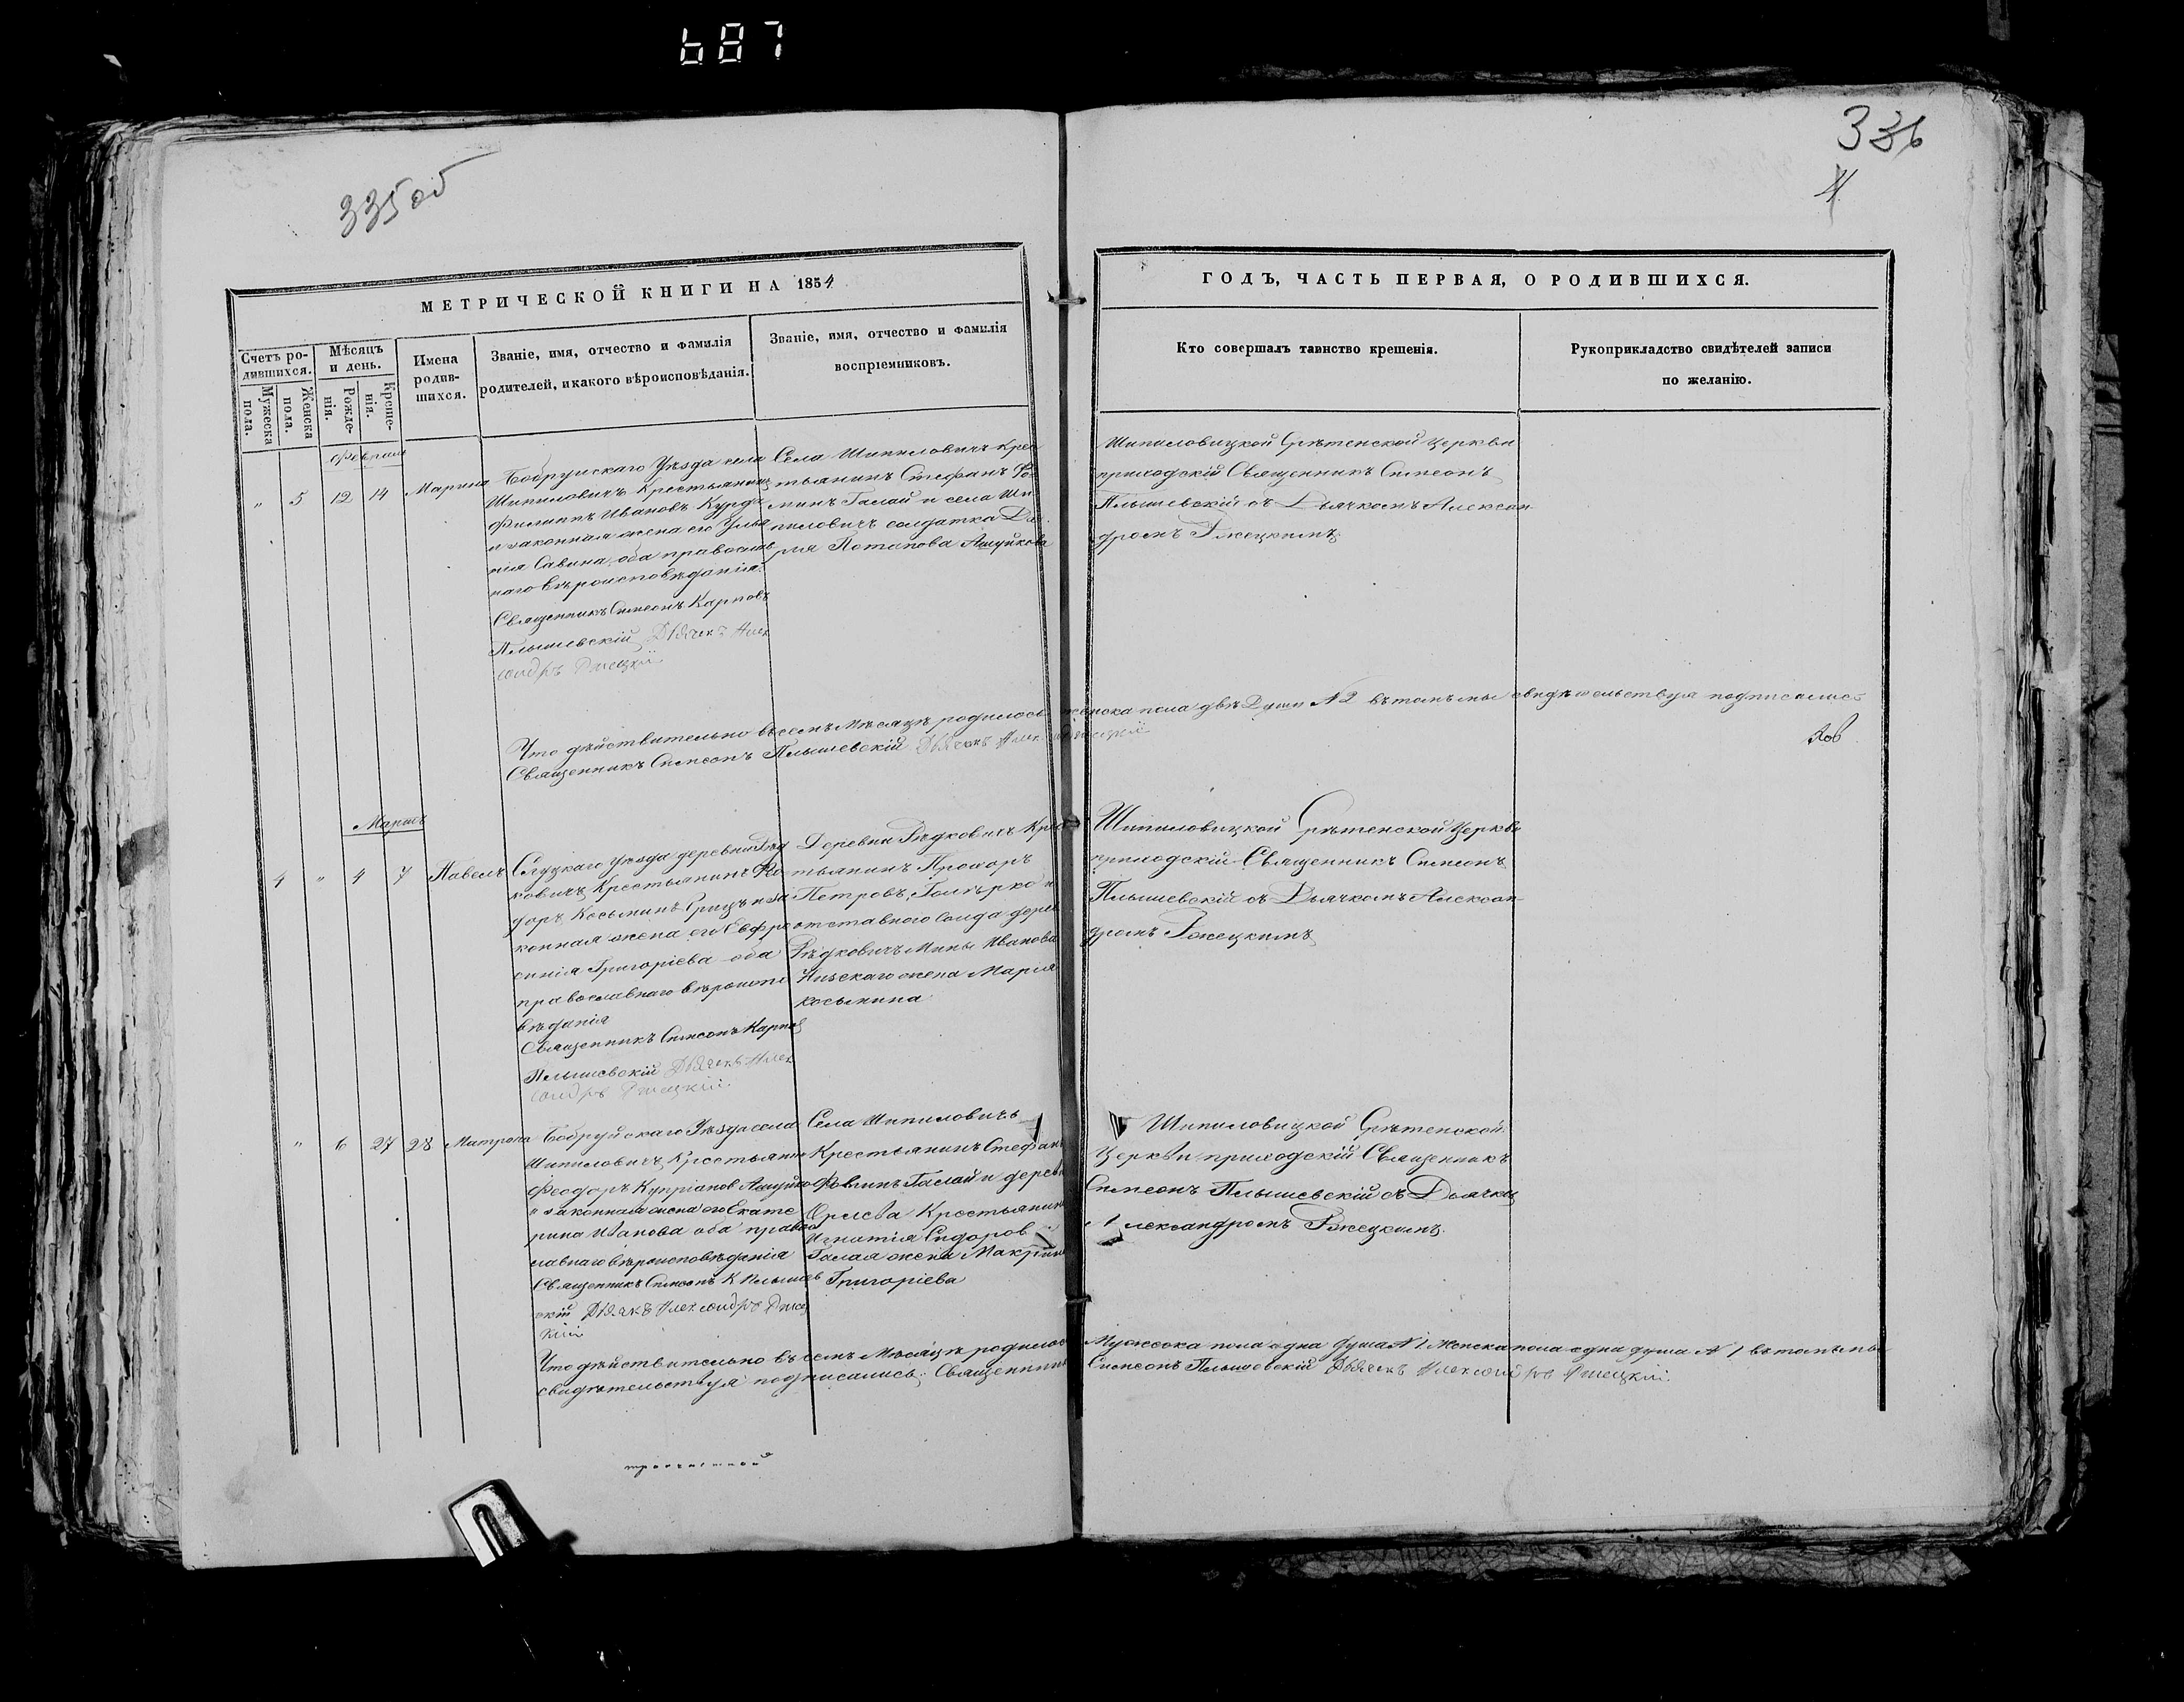 687
335 об
336
4
МЕТРИЧЕСКОЙ КНИГИ НА 1854
ГОДЪ, ЧАСТЬ ПЕРВАЯ, О РОДИВШИХСЯ.
Счетъ ро-
дившихся.
Мужеска
пола.
Женска
пола.
Мѣсяцъ
и день.
Рожде-
нія.
Креще-
нія.
Имена
родив-
шихся.
Званіе, имя, отчество и фамилія
родителей, и какого вѣроисповѣданія.
Званіе, имя, отчество и фамилія
воспріемниковъ.
Кто совершалъ таинство крещенія.
Рукоприкладство свидѣтелей записи
по желанію.
Февраля
" 5 12 14 Марина
Бобруйскаго Уѣзда села
Шипиловичъ Крестьянинъ
Филиппъ Ивановъ
и законная жена его Улья
нія Савина, оба православ
наго вѣроисповѣданія.
Священникъ Симеонъ Карповъ
Плышевскій Дьячекъ Алек
сандръ Ржецкій
Села Шипиловичъ Крес
тьянинъ Стефанъ Фо
минъ Галай и села Ши
пиловичъ солдатка Да
рія Потапова
Шипиловицкой Срѣтенской Церкви
приходскій Священникъ Симеонъ
Плышевскій съ Дьячкомъ Алексан
дромъ Ржецкимъ
Что дѣйствительно въ семъ Мѣсяцѣ родилось женска пола двѣ Души № 2 въ томъ мы свидѣтельствуя подписались
Священникъ Симеонъ Плышевскій Дьячекъ Александръ Ржецкій
Мартъ
4 " 4 7 Павелъ
Слуцкаго Уѣзда деревни Рѣд
ковичъ Крестьянинъ Фео
доръ Косьминъ Грицъ и за
конная жена его Евфро
синія Григоріева оба
православнаго вѣроиспо
вѣданія
Священникъ Симеонъ Карповъ
Плышевскій Дьячекъ Алек
сандръ Ржецкій
Деревни Рѣдковичъ Крес
тьянинъ Прохоръ
Петровъ и
отставного солда дерев
Рѣдковичъ Мины Иванова
жена Марія
Косьмина
Шипиловицкой Срѣтенской Церкви
приходскій Священникъ Симеонъ
Плышевскій съ Дьячкомъ Алексан
дромъ Ржецкимъ
" 6 27 28 Матрона
Бобруйскаго Уѣзда села
Шипиловичъ Крестьянин
Феодоръ Купріановъ
и законная жена его Екате
рина Иванова оба правос
лавнаго вѣроисповѣданія
Священникъ Симеонъ К Плышев
скій Дьячекъ Александръ Ржец
кій
Села Шипиловичъ
Крестьянинъ Стефанъ
Фоминъ Галай и дерев
Крестьянина
Игнатія Сидоров
Галая жена Макрина
Григоріева
Шипиловицкой Срѣтенской
Церкви приходскій Священникъ
Симеонъ Плышевскій съ Дьячкомъ
Александромъ Ржецкимъ
Что дѣйствительно въ семъ Мѣсяцѣ родилось Мужеска пола одна душа № 1 Женска пола одна душа № 1 въ томъ мы
свидѣтельствуя подписались: Священникъ Симеонъ Плышевскій Дьячекъ Александръ Ржецкій